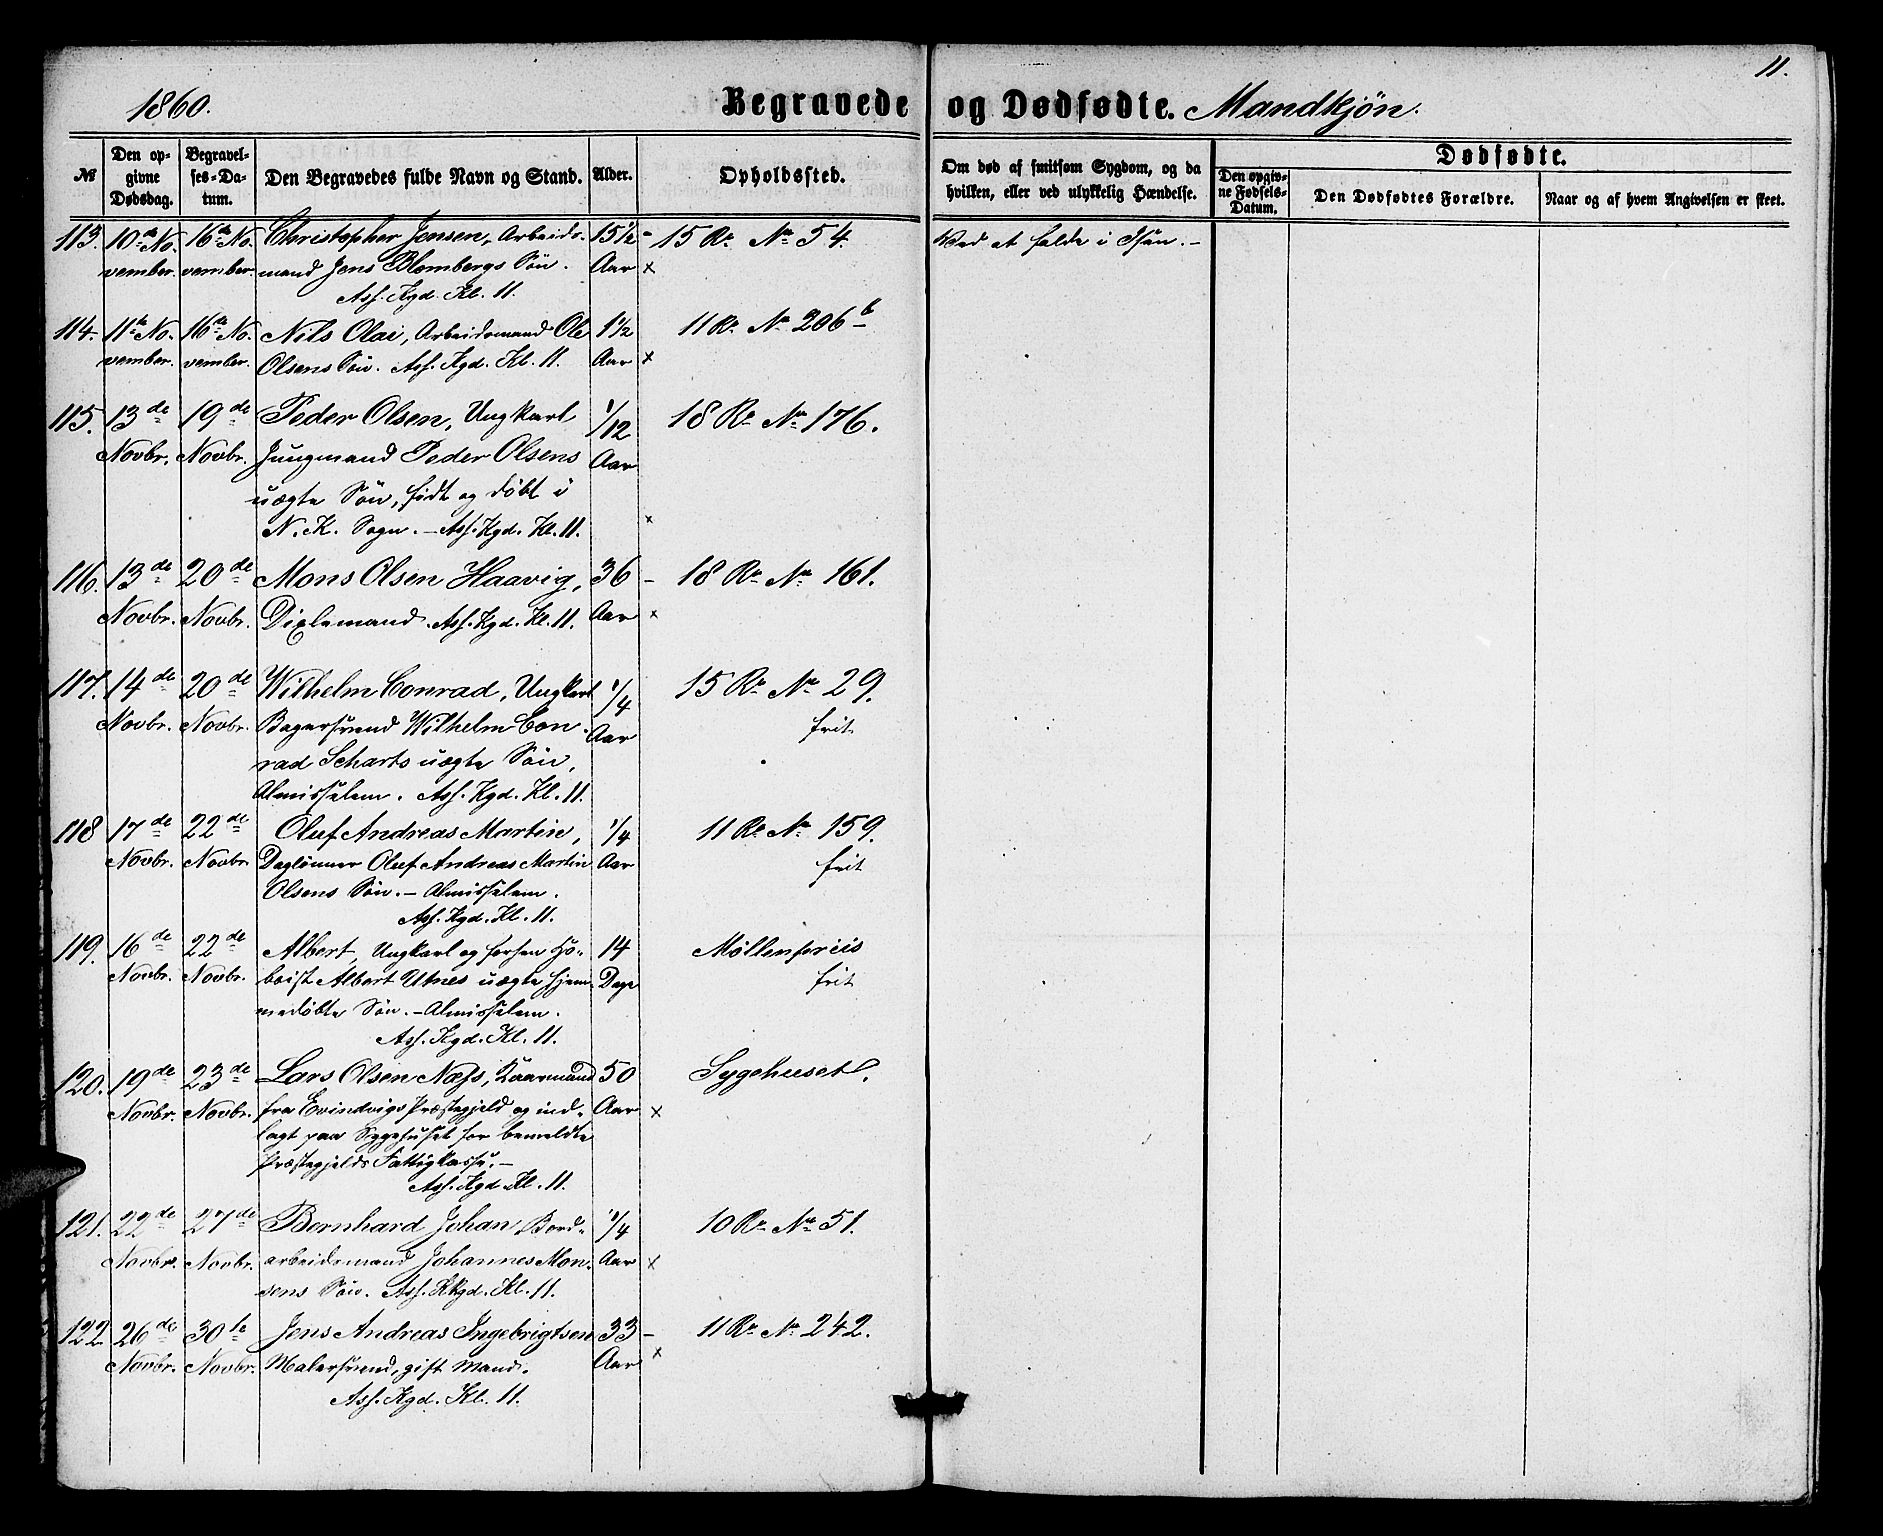 11.
1860. Begravede og Dødfødte. Mandkjøn.
№ Den opgivne Dødsdag. Begravelses-Datum. Den Begravedes fulde Navn og Stand. Alder. Opholdssted. Om død af smitsom Sygdom, og da hvilken, eller ved ulykkelig Hændelse. Dødfødte.
Den opgivne Fødsels-Datum. Den Dødfødtes Forældre. Naar og af hvem Angivelsen er skeet.
113. 10de No- 16de No- Christopher Jensen, Arbeids- 15½ - 15 Re No 54. Ved at falde i Søen. -
vember. vember. mand Jens Blombergs Søn. Aar x
Ass. Kgd. Kl. 11.
114. 11te No- 16de No- Nils Olai, Arbeidsmand Ole 1½ 11 Re No 206 b
vember. vember. Olsens Søn. Ass. Kgd. Kl. 11. Aar x
115. 13de 19de Peder Olsen, Ungkarl 1/12 18 Re No 176.
Novbr. Novbr. Jungmand Peder Olsens Aar
uægte Søn, født og døbt i
N. K. Sogn. - Ass. Kgd. Kl. 11. x
116. 13de 20de Mons Olsen Haavig, 36 - 18 Re No 161.
Novbr. Novbr. Dixlemand. Ass. Kgd. Kl. 11. Aar x
117. 14de 20de Wilhelm Conrad, Ungkarl 1/4 15 Re No 29.
Novbr. Novbr. Bagersvend Wilhelm Con- Aar frit
rad Scharts uægte Søn,
Almisselem. Ass. Kgd. Kl. 11.
118 17de 22de Oluf Andreas Martin, 1/4 11 Re No 159.
Novbr. Novbr. Daglønner Oluf Andreas Martin Aar frit
Olsens Søn. - Almisselem.
Ass. Kgd. Kl. 11.
119. 16de 22de Albert, Ungkarl og forhen Ho- 14 Møllenpreis
Novbr. Novbr. boist Albert Utnes uægte hjem- Dage frit
medøbte Søn. - Almisselem.
Ass. Kgd. Kl. 11.
120. 19de 23de Lars Olsen Næss, Kaarmand 50 Sygehuset.
Novbr. Novbr. fra Evindvigs Præstegjeld og ind- Aar x
lagt paa Sygehuset for bemeldte
Præstegjelds Fattigkasse. -
Ass. Kgd. Kl. 11.
121. 22de 27de Bernhard Johan, Bord- 1/4 10 Re No 51.
Novbr. Novbr. arbeidsmand Johannes Mon- Aar x
sens Søn. Ass. Kkgd. Kl. 11.
122. 26de 30te Jens Andreas Ingebrigtsen 33 - 11 Re No 242.
Novbr. Novbr. Malersvend, gift Mand. Aar x
Ass. Kgd. Kl. 11.